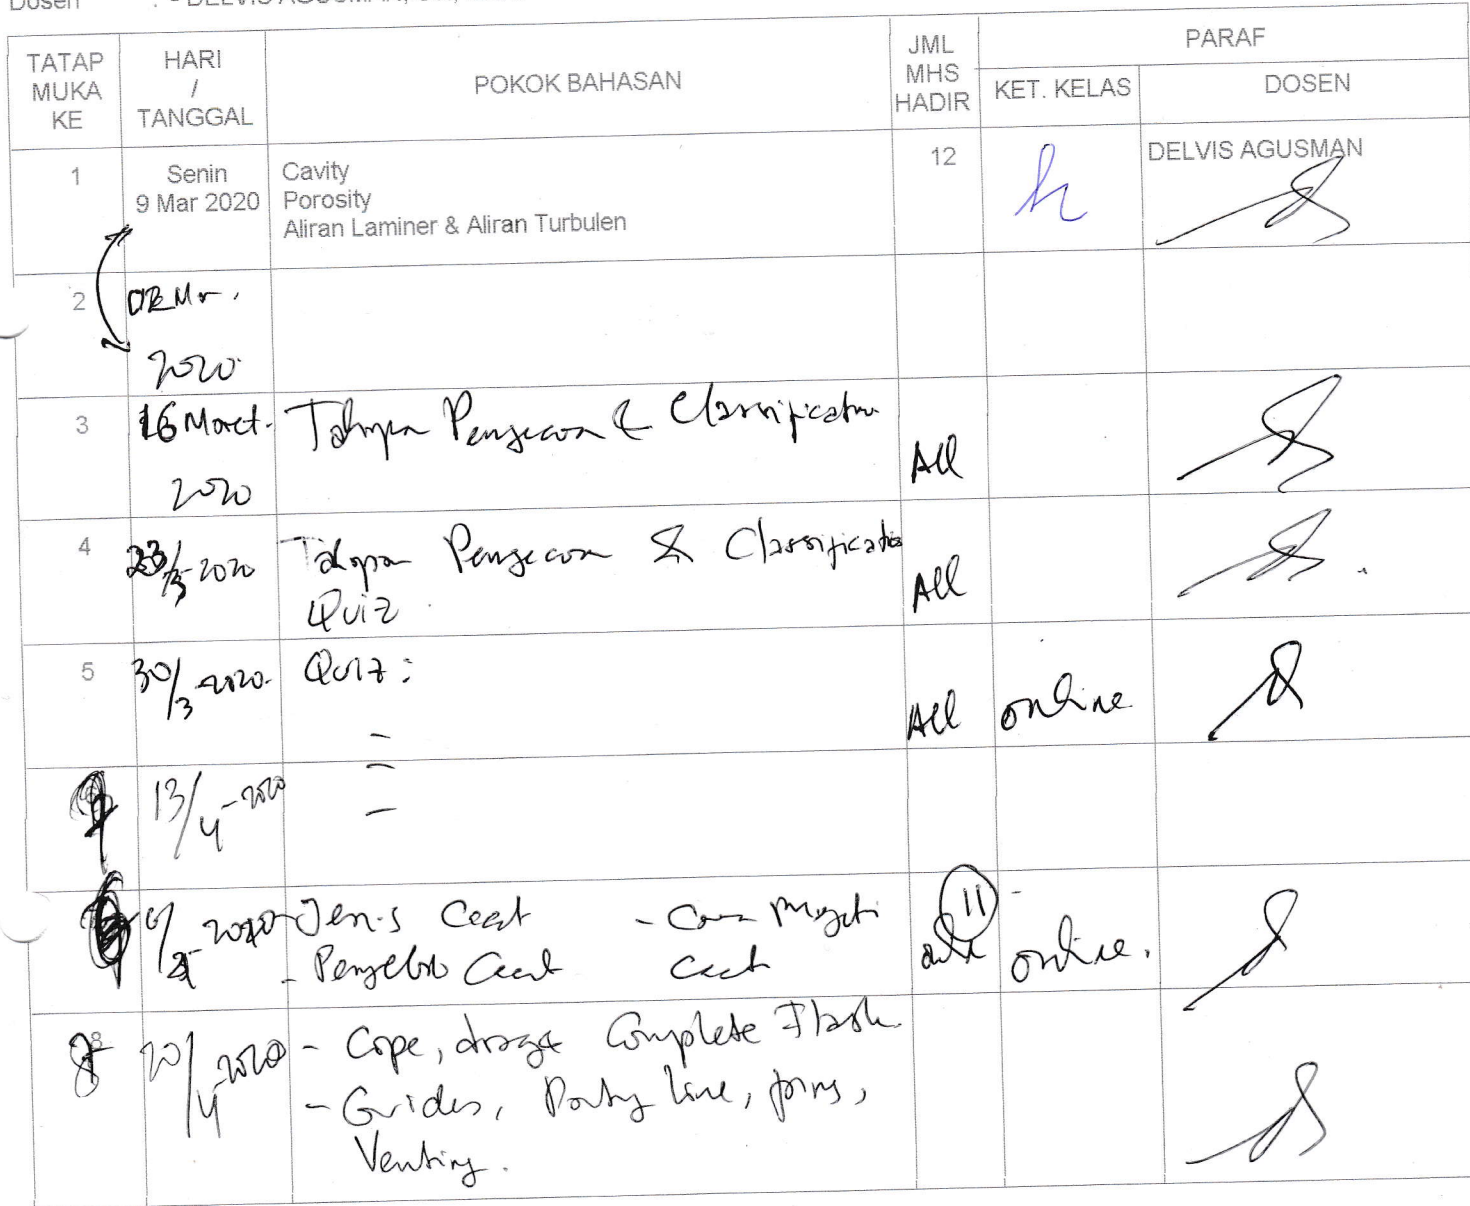 Dosen : - DELVIS AGUSMAN,
TATAP MUKA KE
HARI / TANGGAL
POKOK BAHASAN
JML MHS HADIR
PARAF
KET. KELAS
DOSEN
1
Senin
9 Mar 2020
Cavity
Porosity
Aliran Laminer & Aliran Turbulen
12
DELVIS AGUSMAN
2
2020
3
16 Maret
2020
Pengecoran & Classification
All
4
23/3-2020
Pengecoran & Classification
Quiz
All
5
30/3-2020
Quiz :
All
online
13/4-2020
2020
- Jenis Cacat
- Penyebab Cacat
- Cara
Cacat
11
online.
8
20/4-2020
- Cope, drag Complete Flask
- Guides, Parting line, pins,
Venting.